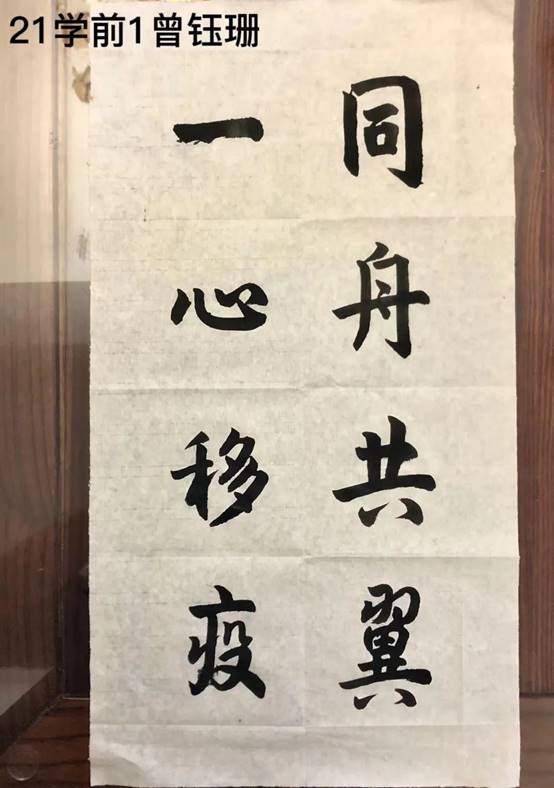 21学前1曾钰珊
同舟共翼
一心移疫